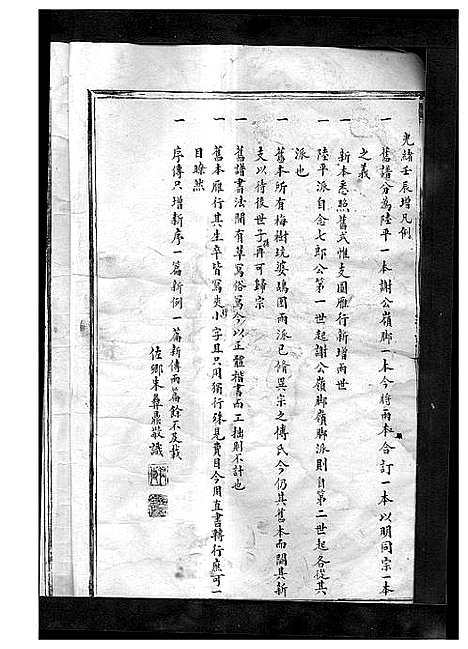 光緒壬辰增凡例
一 舊譜分為陸平一本謝公嶺脚一本今將兩本合訂一本以明同宗一本
之義
一 新本悉照舊式惟支圖雁行新增兩世
一 陸平派自念七郎公第一世起謝公嶺脚嶺脚派則自第二世起各從其
派也
一 舊本所有梅樹坑婆鴣圓兩派已脩異宗之傅氏今仍其舊本而闕其新
支以待後世子孫再可歸宗
一 舊譜書法間有草寫俗寫今以正體楷書而工拙則不計也
一 舊本雁行其生卒皆寫夾小字且只用獨行殊見費目今用直書轉行庶可一
目瞭然
一 序傳只增新序一篇新例一篇新傳兩篇餘不及載
佐鄉朱彝鼎敬識